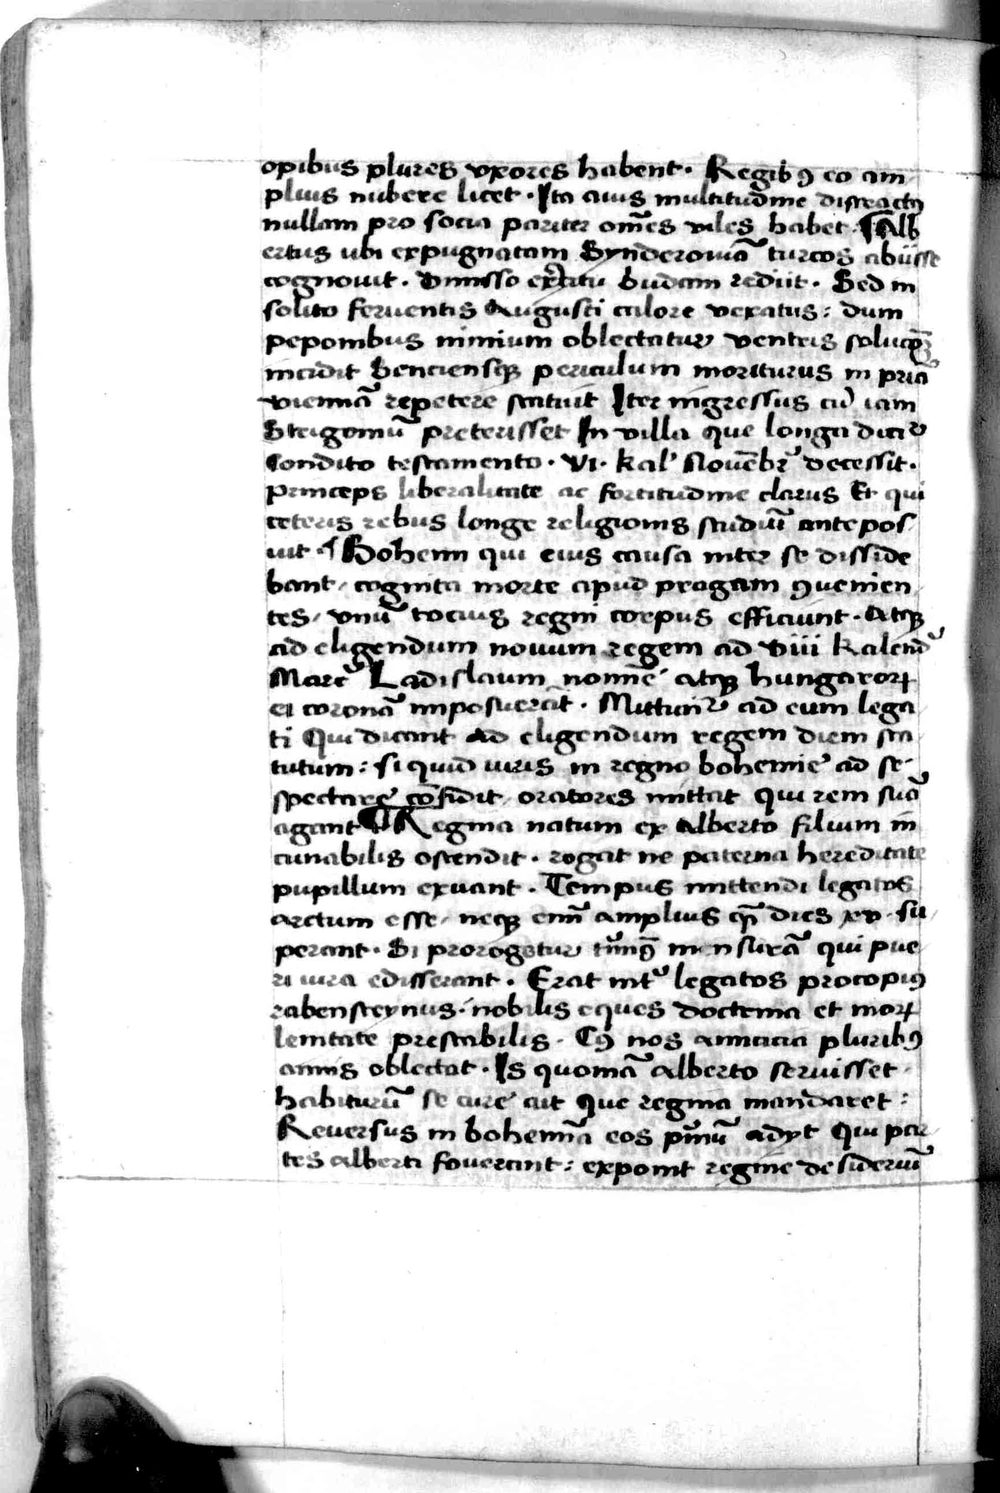 opibus plures vxores habent · Regibꝯ eo am
plius nubere licet · Ita aīus multitudine distractꝯ
nullam pro socia pariter om̄es viles habet · ¶ Alb
ertus ubi expugnatam Synderoniā turcos abiisse
cognouit · Dimisso ex̄citu budam rediit · Sed in
solito feruentis Augusti calore vexatus : dum
peponibus nimium oblectatur ventris
incidit periculum moriturus in pr̄iā
viennā repetere statuit Iter ingressus cū iam
Strigoniū preterisset In villa que longa dicit᷑
Condito testamento · VI · kal' Nouēbr̄ decessit ·
Princeps liberalitate ac fortitudine clarus Et qui
ceteris rebus longe religionis studiū antepos
uit · ¶ Bohemi qui eius causa inter se disside
bant / cognita morte apud pragam ꝯuenien
tes / vnū tocius regni corpus efficiunt · Atqꝫ
ad eligendum nouum regem ad viii kalend̄
Marc̄ Ladislaum nomīe atqꝫ hungaroꝝ
ei coronā imposuerat · Mittunt᷑ ad eum lega
ti Qui dicant Ad eligendum regem diem sta
tutum : si quid iuris in regno bohemie ad se
spectare cōfidit / oratores mittat qui rem suā
agant ¶ Regina natum ex Alberto filium in
cunabilis ostendit · rogat ne paterna hereditate
pupillum exuant · Tempus mittendi legatos
arctum esse / neqꝫ enī amplius qͣ̄ dies xv · su
perant · Si prorogetur mensurā qui pue
ri iura edisserant · Erat int̄ legatos procopiꝯ
rabensteynus · nobilis eques doctrina et moꝝ
lenitate prestabilis · Cꝯ nos amicicia pluribꝯ
annis oblectat · Is quoniā alberto seruisset ·
habiturū se cure ait que regina mandaret :
Reversus in bohemiā eos pͥmū adyt Qui par
tes alberti fouerant : exponit regine desideriū